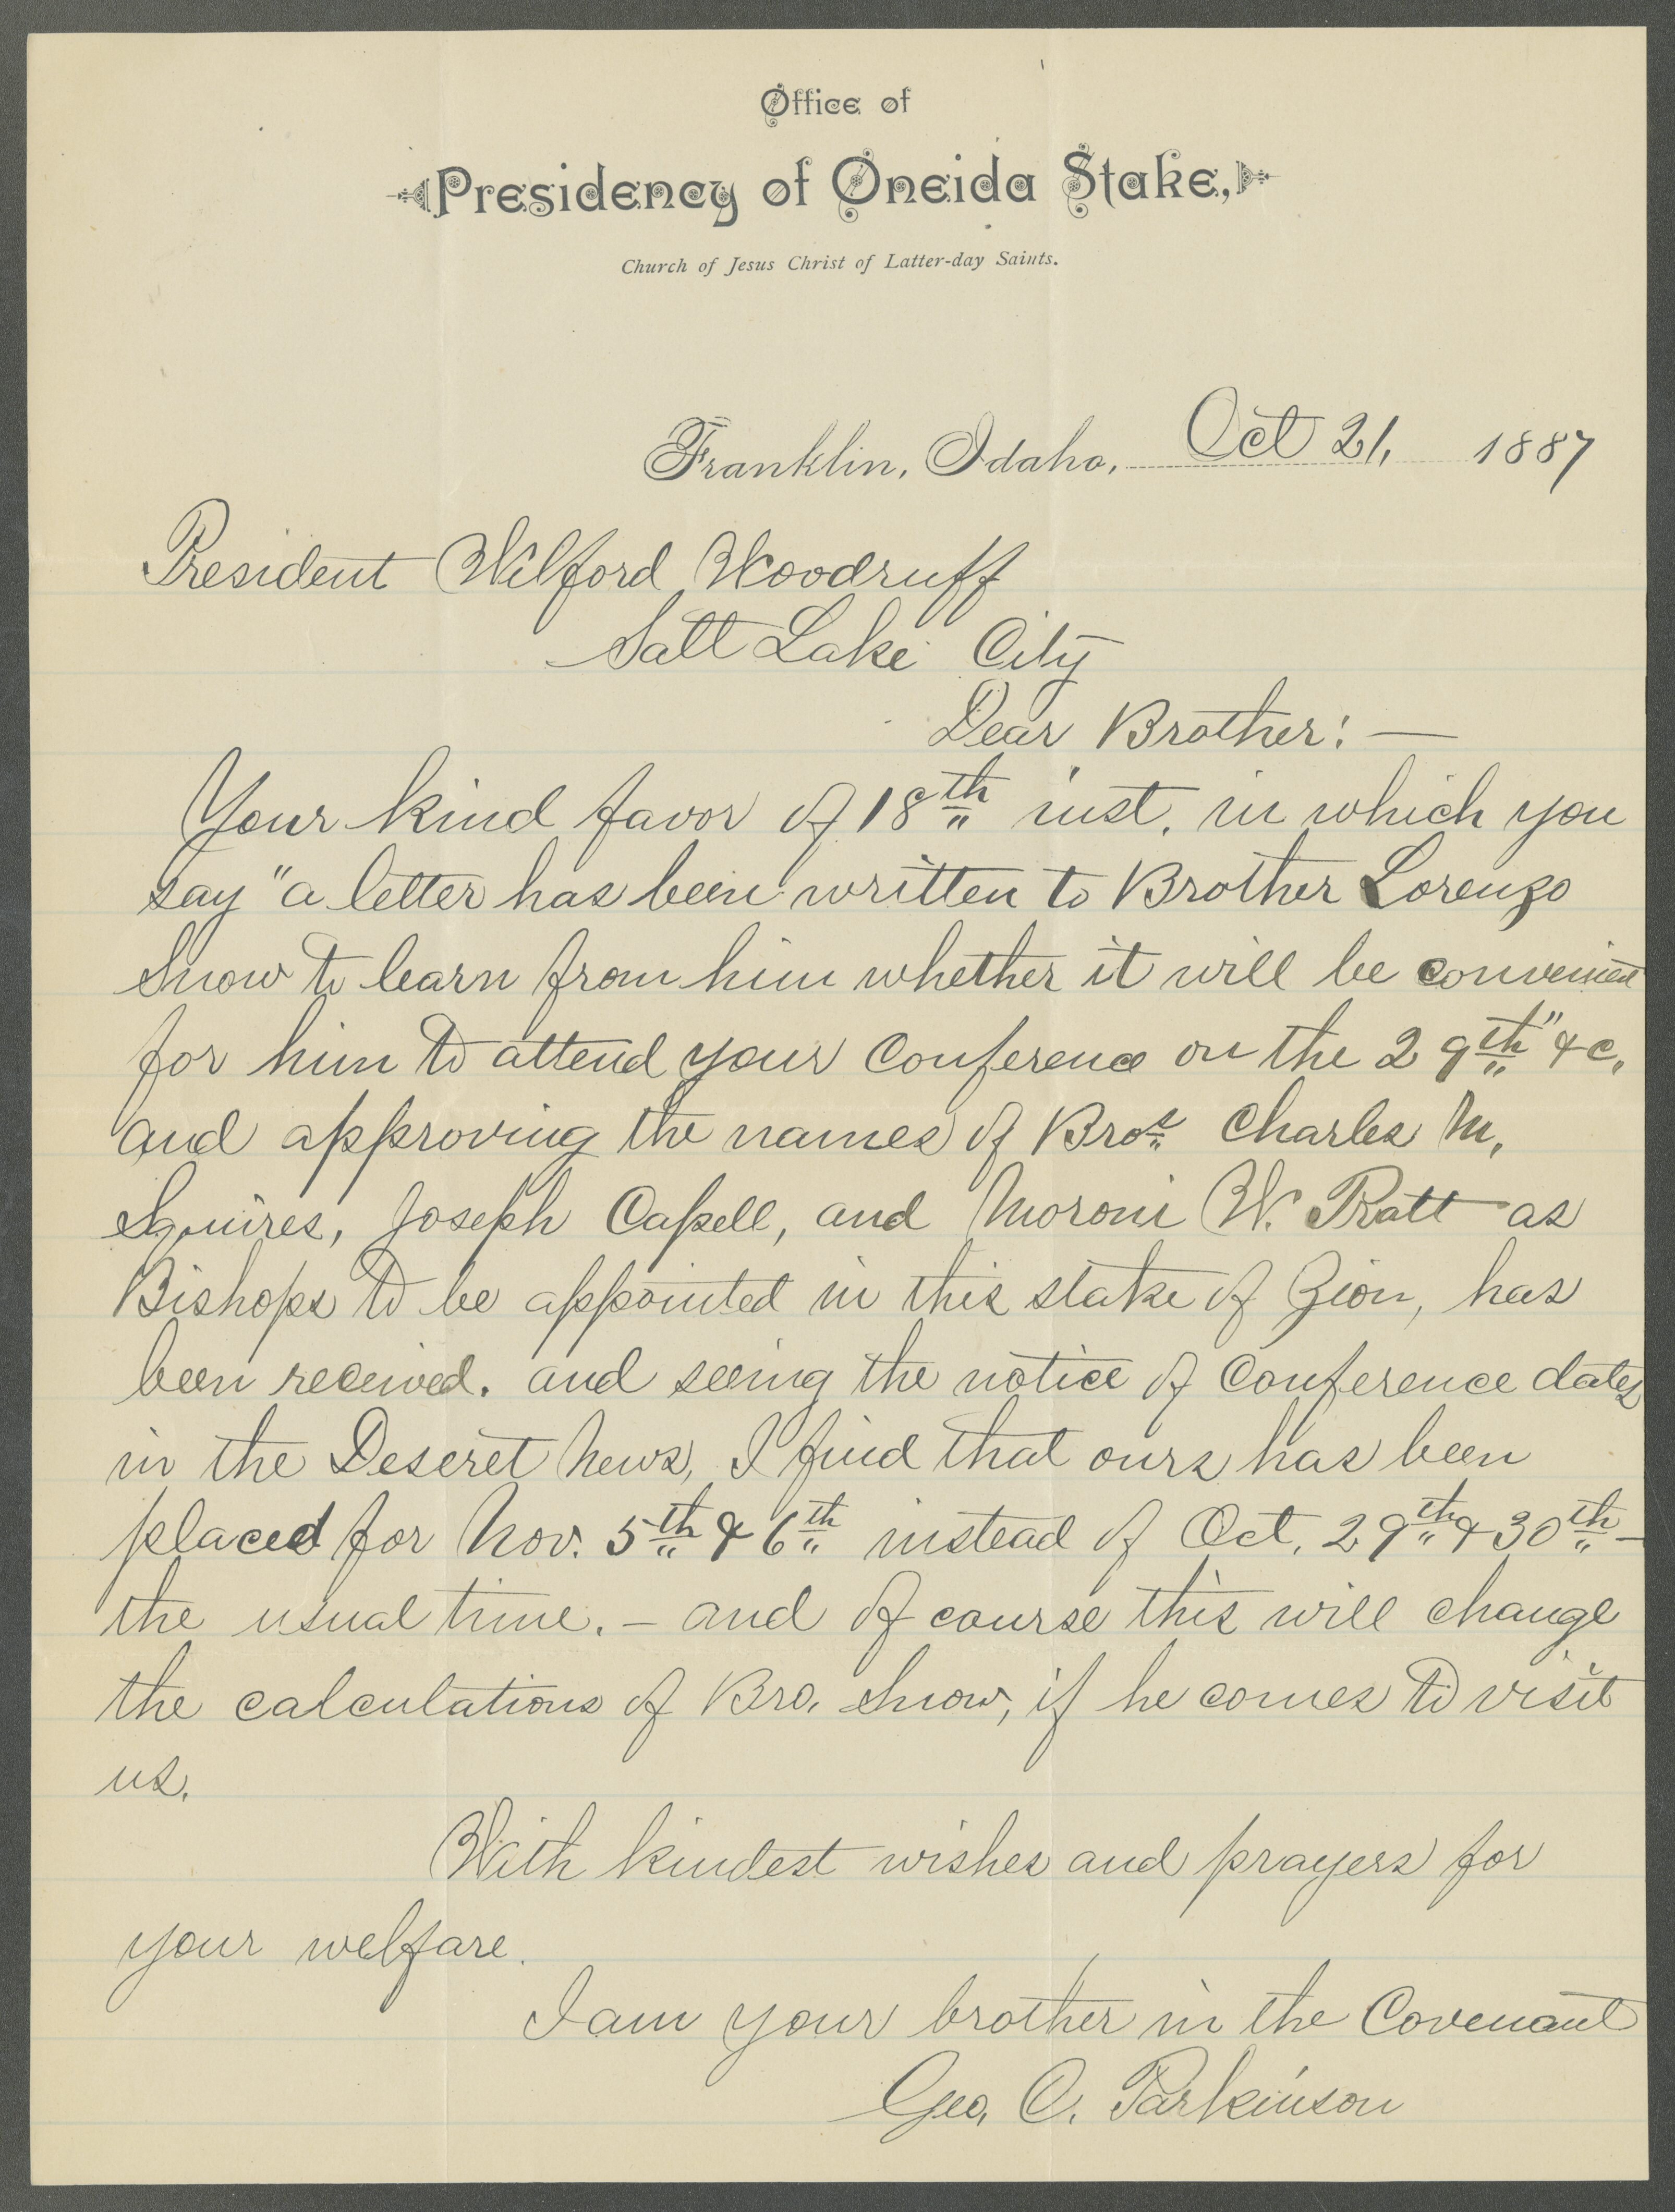 Office of
Presidency of Oneida Stake,
Church of Jesus Christ of Latter-day Saints.
Franklin, Idaho, Oct 21, 1887
President Wilford Woodruff
Salt Lake City
Dear Brother: —
Your kind favor of 18th inst. in which you
say "a letter has been written to Brother Lorenzo
Snow to learn from him whether it will be convenient
for him to attend your Conference on the 29th" &c.
and approving the names of Bros. Charles M.
Squires, Joseph Capell, and Moroni W. Pratt as
Bishops to be appointed in this stake of Zion, has
been received. and seeing the notice of Conference dates
in the Deseret News, I find that ours has been
placed for Nov. 5th & 6th instead of Oct. 29th & 30th —
the usual time. — and of course this will change
the calculations of Bro. Snow, if he comes to visit
us.
With kindest wishes and prayers for
your welfare.
I am your brother in the Covenant
Geo. C. Parkinson